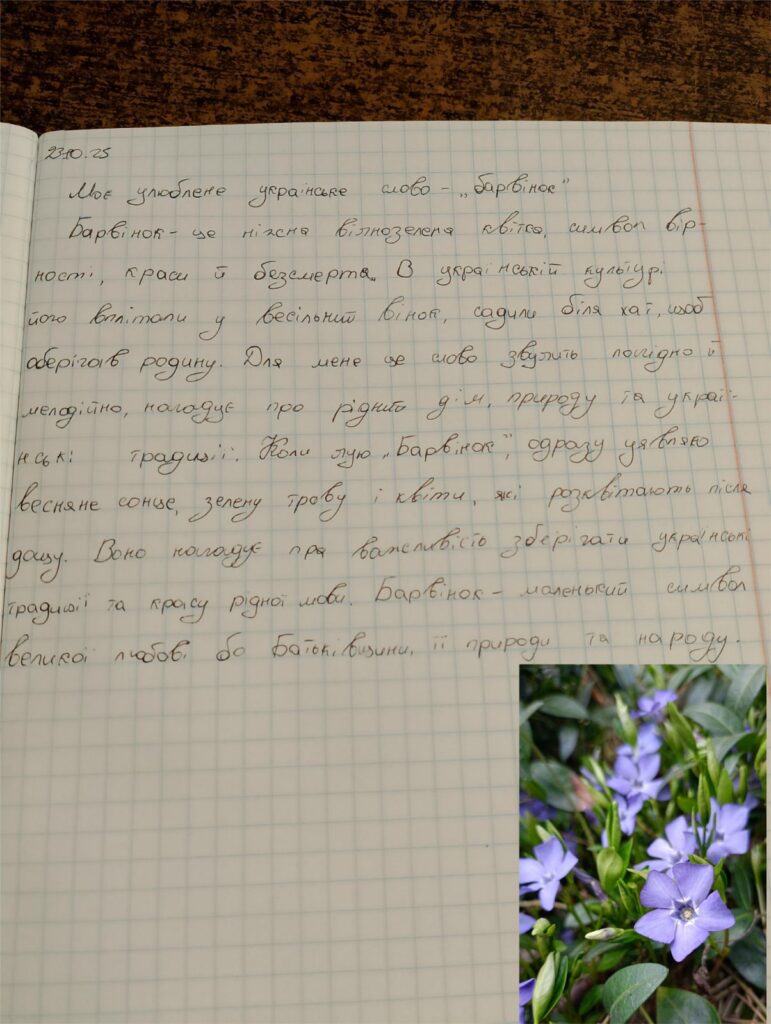 23.10.25
Моє улюблене українське слово - „барвінок"
Барвінок - це ніжна вічнозелена квітка, символ вір-
ності, краси й безсмертя. В українській культурі
його вплітали у весільний вінок, садили біля хат, щоб
оберігав родину. Для мене це слово звучить лагідно й
мелодійно, нагадує про рідний дім, природу та украї-
нські традиції. Коли чую „Барвінок", одразу уявляю
весняне сонце, зелену траву і квіти, які розквітають після
дощу. Воно нагадує про важливість зберігати українські
традиції та красу рідної мови. Барвінок - маленький символ
великої любові до Батьківщини, її природи та народу.